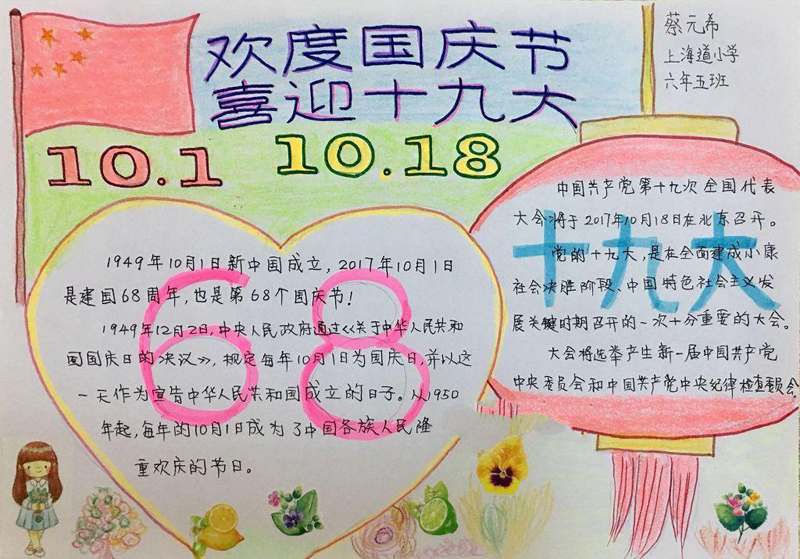 欢度国庆节
喜迎十九大
10.1
10.18
蔡元希
上海道小学
六年五班
1949年10月1日新中国成立，2017年10月1日
是建国68周年，也是第68个国庆节！
1949年12月2日，中央人民政府通过《关于中华人民共和
国国庆日的决议》，规定每年10月1日为国庆日，并以这
一天作为宣告中华人民共和国成立的日子。从1950
年起，每年的10月1日成为了中国各族人民隆
重欢庆的节日。
68
中国共产党第十九次全国代表
大会将于2017年10月18日在北京召开。
党的十九大，是在全面建成小康
社会决胜阶段、中国特色社会主义发
展关键时期召开的一次十分重要的大会。
大会将选举产生新一届中国共产党
中央委员会和中国共产党中央纪律检查委员会。
十九大